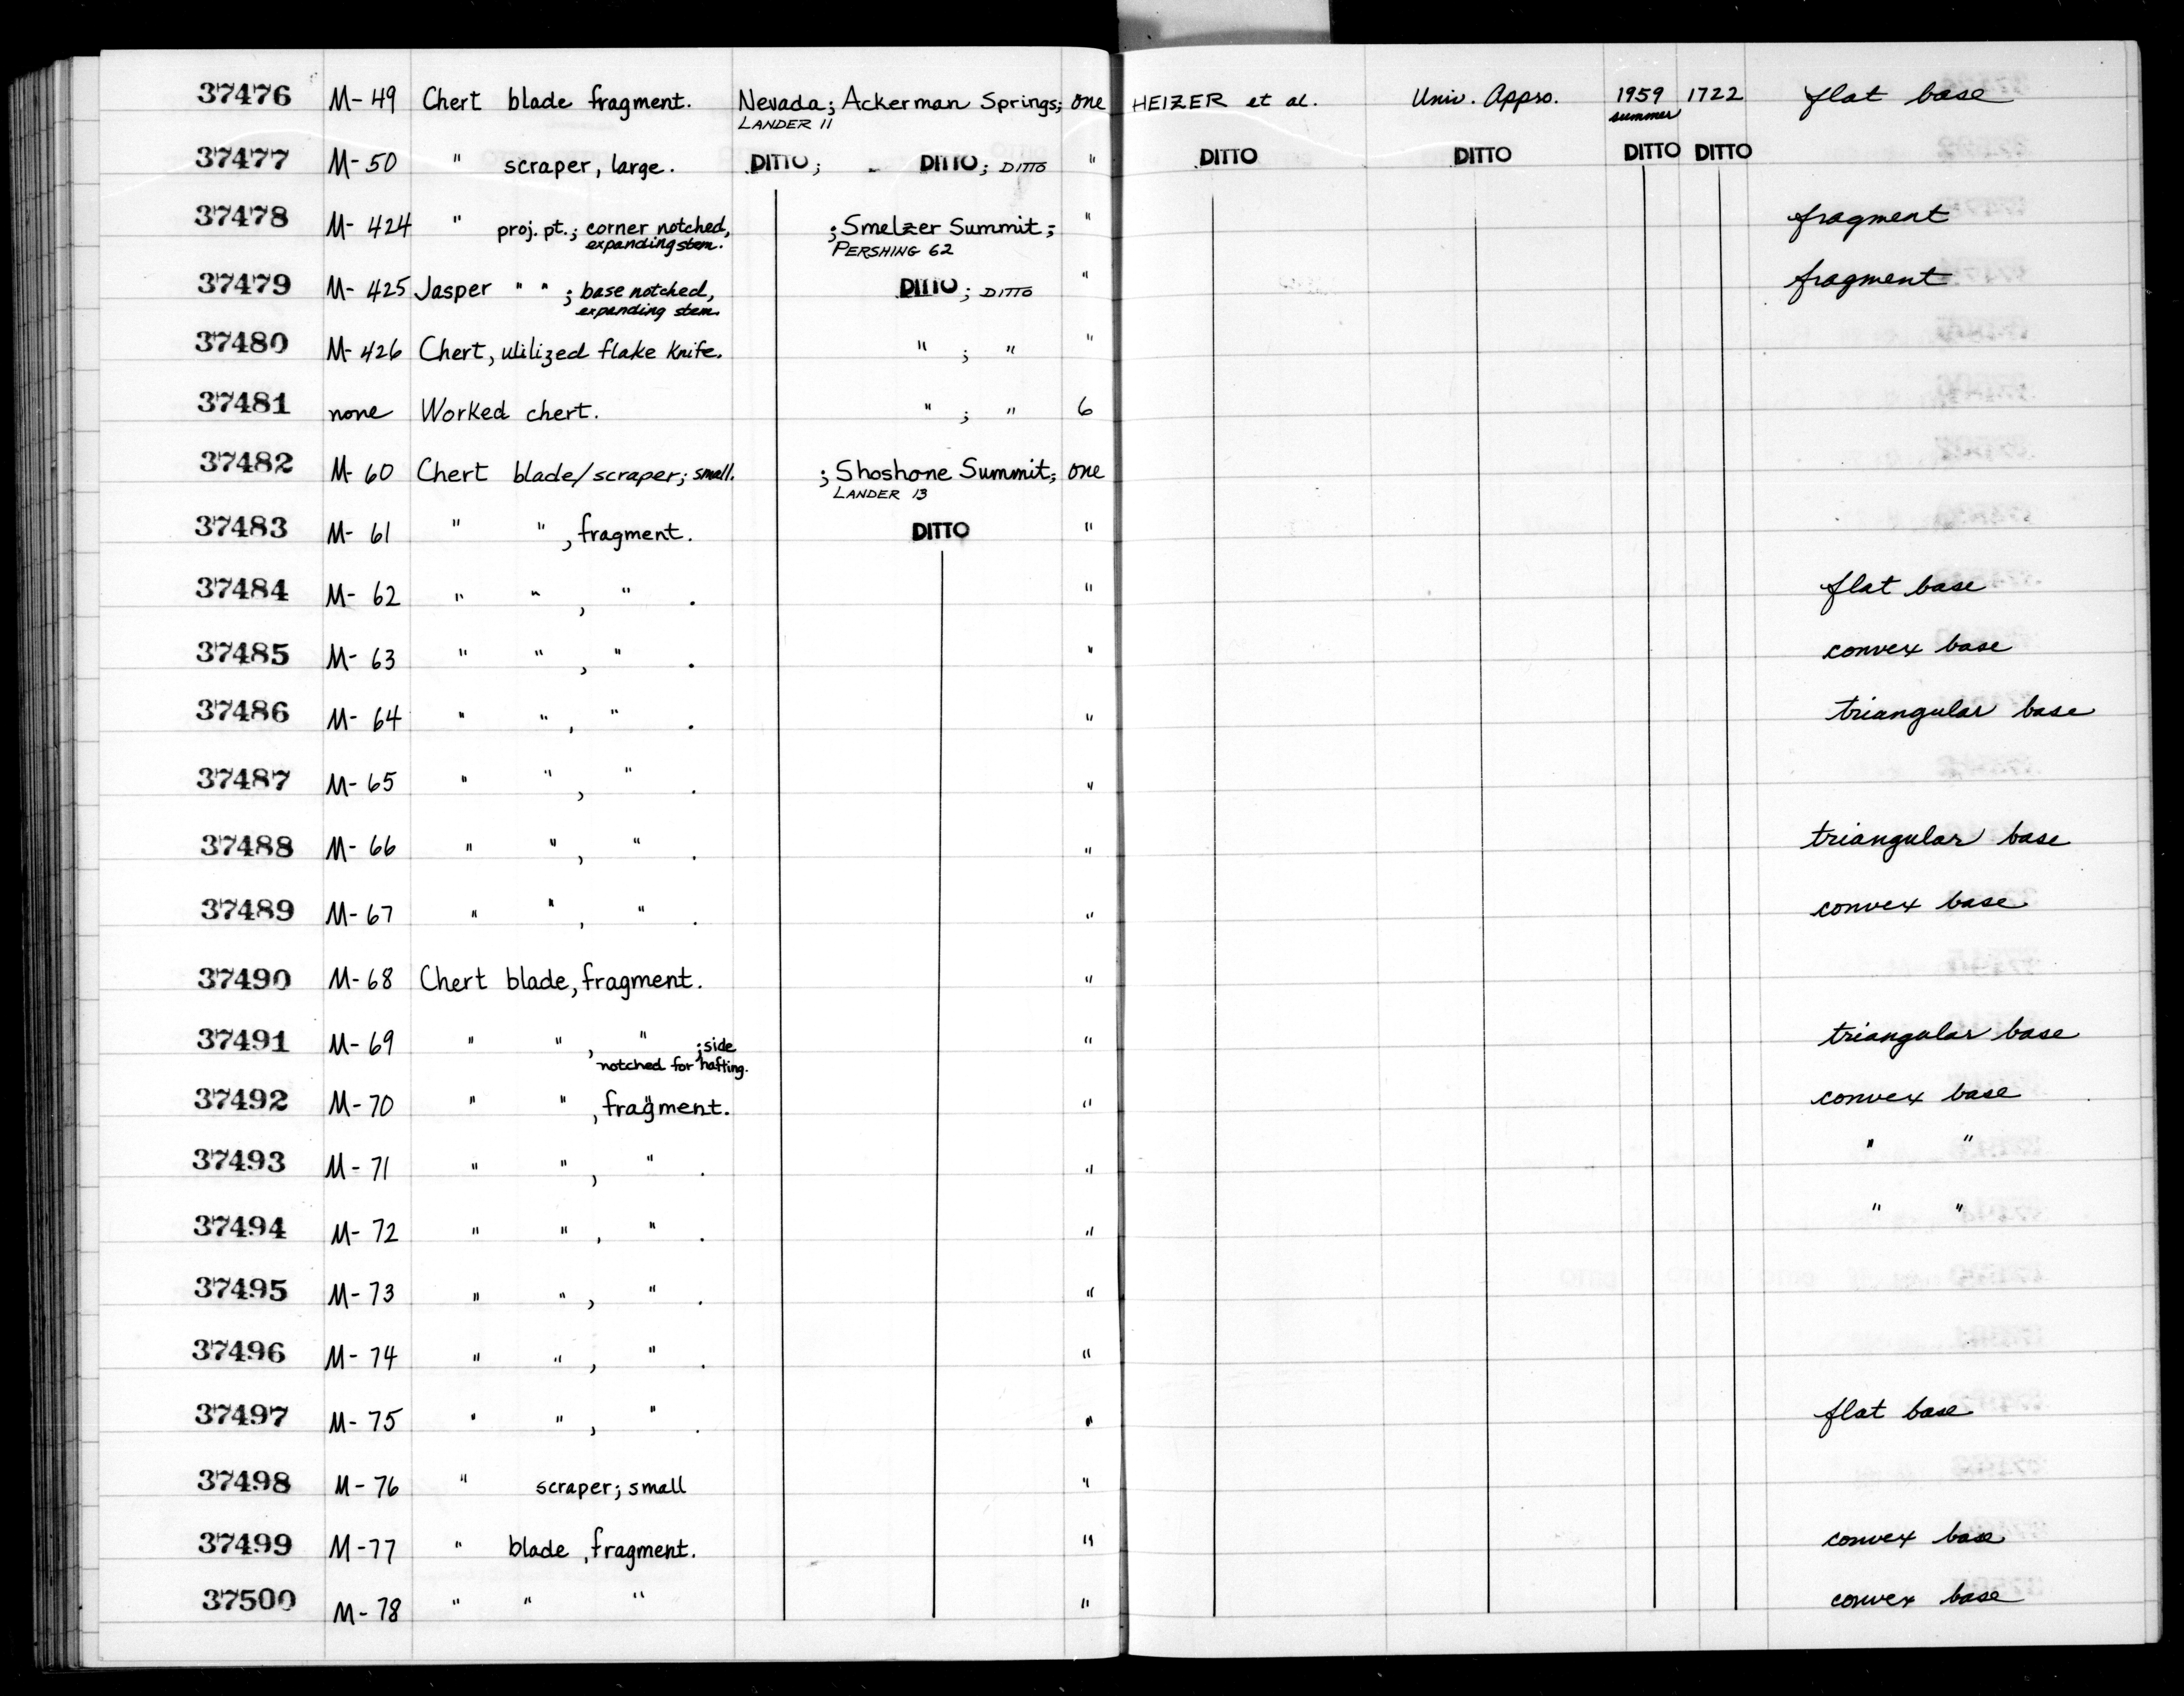 37476 M-49 Chert blade fragment. Nevada; Ackerman Springs; one HEIZER et al. Univ. Appro. 1959 1722 flat base
LANDER 11 summer
37477 M-50 " scraper, large. DITTO; DITTO; DITTO " DITTO DITTO DITTO DITTO
37478 M-424 " proj. pt.; corner notched, ; Smelzer Summit; " fragment
expanding stem. PERSHING 62
37479 M-425 Jasper " " ; base notched, DITTO; DITTO " fragment
expanding stem.
37480 M-426 Chert, utilized flake knife. " ; " "
37481 none Worked chert. " ; " 6
37482 M-60 Chert blade/scraper; small. ; Shoshone Summit; one
LANDER 13
37483 M-61 " " , fragment. DITTO "
37484 M-62 " " , " . " flat base
37485 M-63 " " , " . " convex base
37486 M-64 " " , " . " triangular base
37487 M-65 " " , " . "
37488 M-66 " " , " . " triangular base
37489 M-67 " " , " . " convex base
37490 M-68 Chert blade, fragment. "
37491 M-69 " " , " ; side " triangular base
notched for hafting.
37492 M-70 " " , fragment. " convex base
37493 M-71 " " , " . " " "
37494 M-72 " " , " . " " "
37495 M-73 " " , " . "
37496 M-74 " " , " . "
37497 M-75 " " , " . " flat base
37498 M-76 " scraper; small "
37499 M-77 " blade, fragment. " convex base
37500 M-78 " " " " convex base